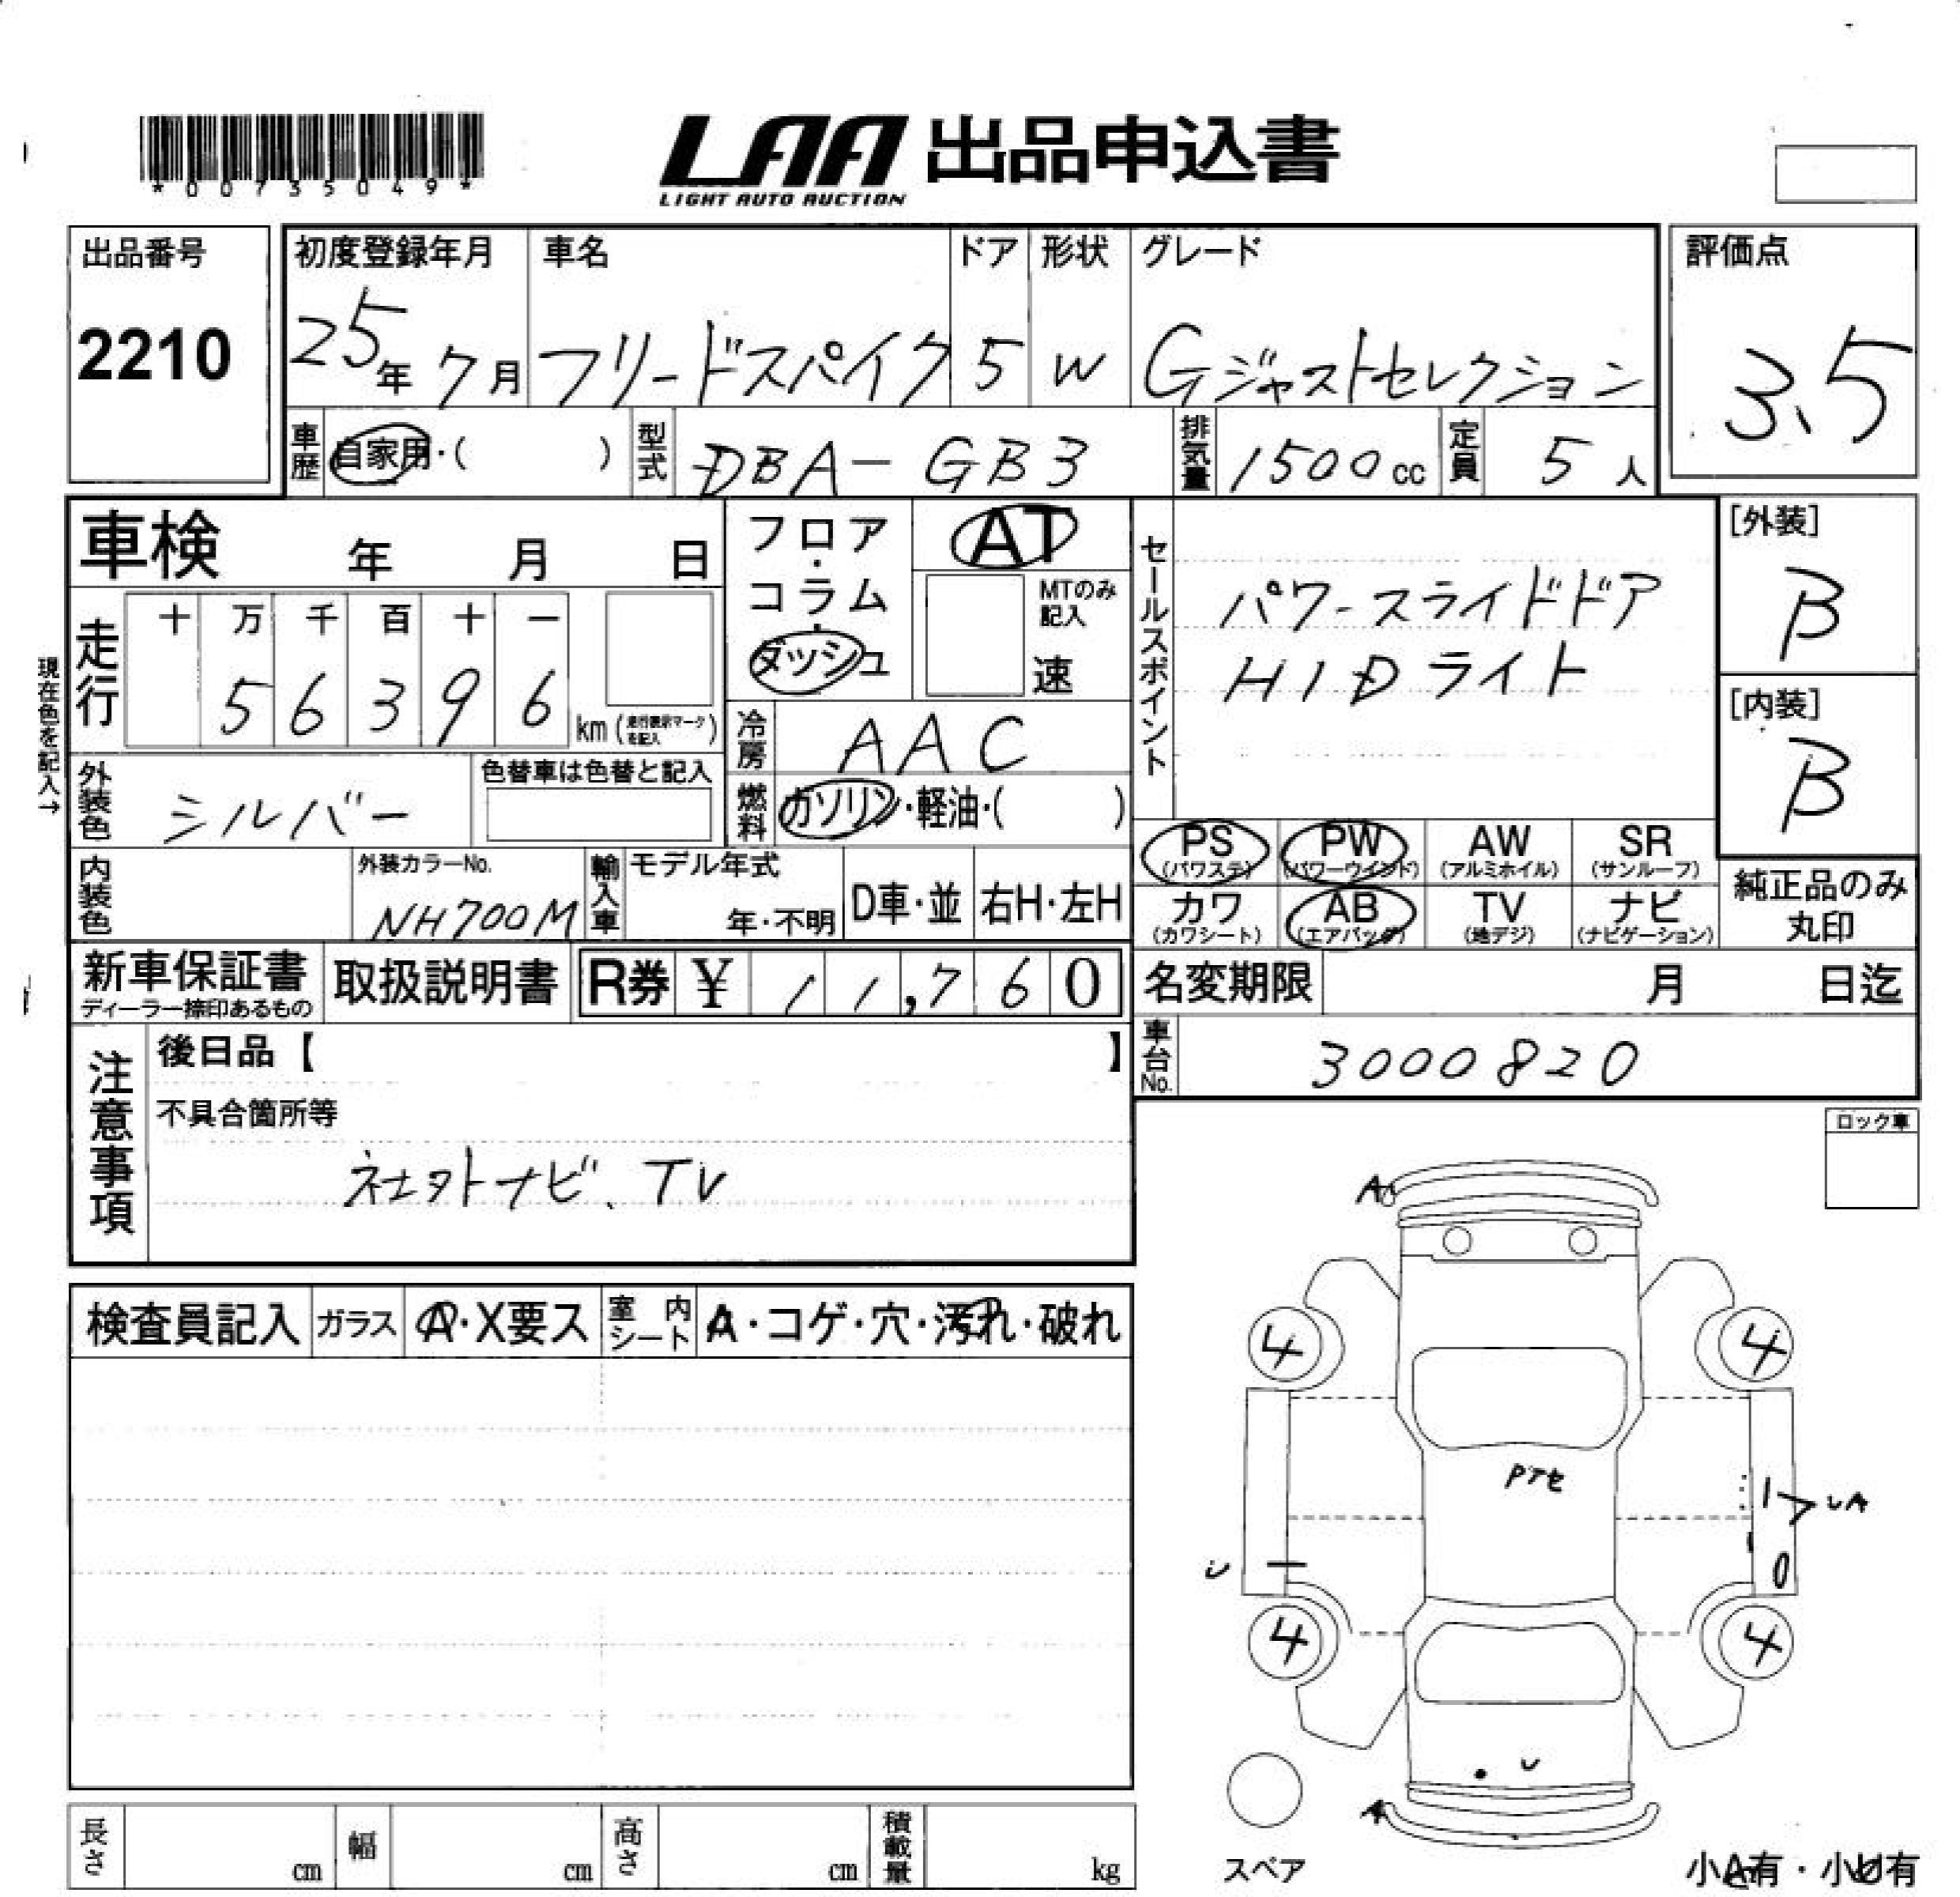 *00735049*
LAA 出品申込書
LIGHT AUTO AUCTION
出品番号
2210
初度登録年月
25年 7月
車名
フリードスパイク
ドア
5
形状
W
グレード
Gジャストセレクション
評価点
3.5
車歴
自家用・( )
型式
DBA-GB3
排気量
1500cc
定員
5人
車検 年 月 日
フロア・コラム・ダッシュ
AT
MTのみ記入
速
セールスポイント
パワースライドドア
HIDライト
[外装]
B
[内装]
B
現在色を記入→
走行
十 万 千 百 十 一
5 6 3 9 6
km(走行表示マークを記入)
冷房
AAC
外装色
シルバー
色替車は色替と記入
燃料
ガソリン・軽油・( )
PS
(パワステ)
PW
(パワーウインド)
AW
(アルミホイル)
SR
(サンルーフ)
内装色
外装カラーNo.
NH700M
輸入車
モデル年式
年・不明
D車・並
右H・左H
カワ
(カワシート)
AB
(エアバッグ)
TV
(地デジ)
ナビ
(ナビゲーション)
純正品のみ
丸印
新車保証書
ディーラー捺印あるもの
取扱説明書
R券 ¥ 11,760
名変期限 月 日迄
車台No.
3000820
注意事項
後日品【 】
不具合箇所等
社外ナビ、TV
ロック車
検査員記入
ガラス
A・X要ス
室内シート
A・コゲ・穴・汚れ・破れ
A
4
4
PTセ
UA
U
4
4
U
A
スペア
長さ cm
幅 cm
高さ cm
積載量 kg
小A有・小U有